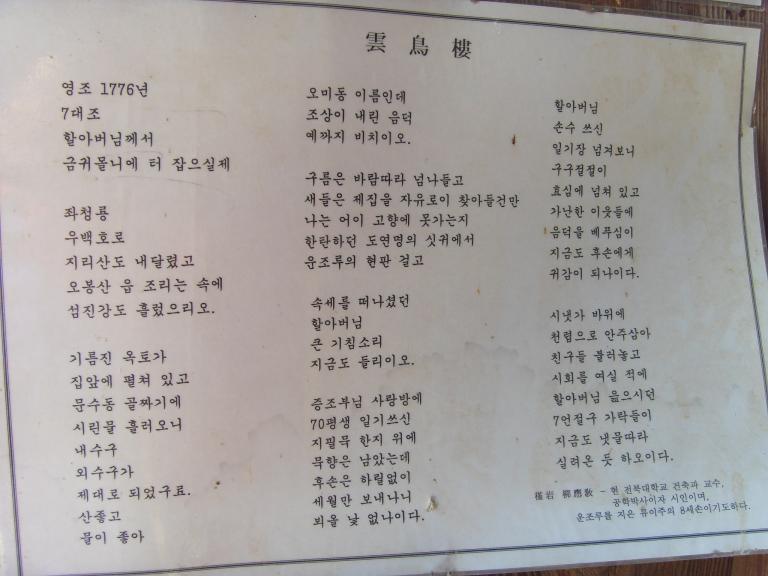 雲鳥樓
영조 1776년
7대조
할아버님께서
금귀몰니에 터 잡으실제
좌청룡
우백호로
지리산도 내달렸고
오봉산 읍 조리는 속에
섬진강도 흘렀으리오.
기름진 옥토가
집앞에 펼쳐 있고
문수동 골짜기에
시린물 흘러오니
내수구
외수구가
제대로 되었구료.
산좋고
물이 좋아
오미동 이름인데
조상이 내린 음덕
예까지 비치이오.
구름은 바람따라 넘나들고
새들은 제집을 자유로이 찾아들건만
나는 어이 고향에 못가는지
한탄하던 도연명의 싯귀에서
운조루의 현판 걸고
속세를 떠나셨던
할아버님
큰 기침소리
지금도 들리이오.
증조부님 사랑방에
70평생 일기쓰신
지필묵 한지 위에
묵향은 남았는데
후손은 하릴없이
세월만 보내나니
뵈올 낯 없나이다.
할아버님
손수 쓰신
일기장 넘겨보니
구구절절이
효심에 넘쳐 있고
가난한 이웃들에
음덕을 베푸심이
지금도 후손에게
귀감이 되나이다.
시냇가 바위에
천렵으로 안주삼아
친구들 불러놓고
시회를 여실 적에
할아버님 읊으시던
7언절구 가락들이
지금도 냇물따라
실려온 듯 하오이다.
槿岩 柳應敎 - 현 전북대학교 건축과 교수,
공학박사이자 시인이며,
운조루를 지은 류이주의 8세손이기도하다.